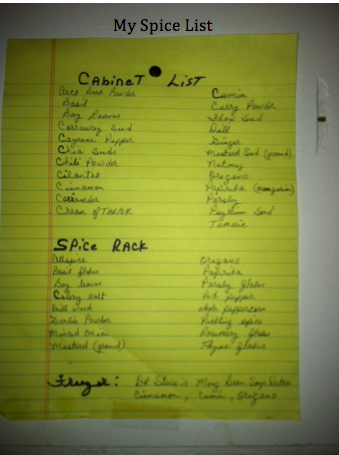 My Spice List
CABINET LIST
Beet Powder Cumin
Basil Curry Powder
Bay Leaves Flax Seed
Carraway Seed Dill
Cayenne Pepper Ginger
Chia Seeds Mustard Seed (ground)
Chili Powder Nutmeg
Cilantro Oregano
Cinnamon Paprika (Hungarian)
Coriander Parsley
Cream of TARTER Psyllium Seed
SPICE RACK
Allspice Oregano
Basil flakes Paprika
Bay leaves Parsley flakes
Celery salt Red pepper
Dill weed whole peppercorn
Garlic Powder Pickling spice
Minced Onion Rosemary flakes
Mustard (ground) Thyme flakes
Freezer: DR Mung Bean
Cinnamon, Cumin, Oregano